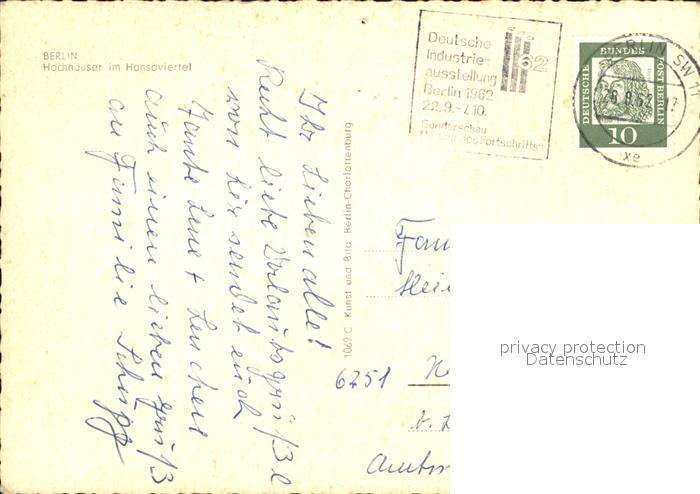 BERLIN
Hochhäuser im Hansaviertel
Deutsche
Industrie-
ausstellung
Berlin 1962
22.9.-7.10.
Sonderschau
des Fortschritts
62
DEUTSCHE BUNDESPOST BERLIN
10
BERLIN SW 11
26.9.62
xe
1069 C Kunst und Bild Berlin-Charlottenburg
Ihr Lieben alle!
Recht liebe Urlaubsgrüße
von hier sendet euch
Tante Lene + Lenchen
auch einen lieben Gruß
an Familie Schupp
Fam
Hei
6251
b. L
privacy protection
Datenschutz